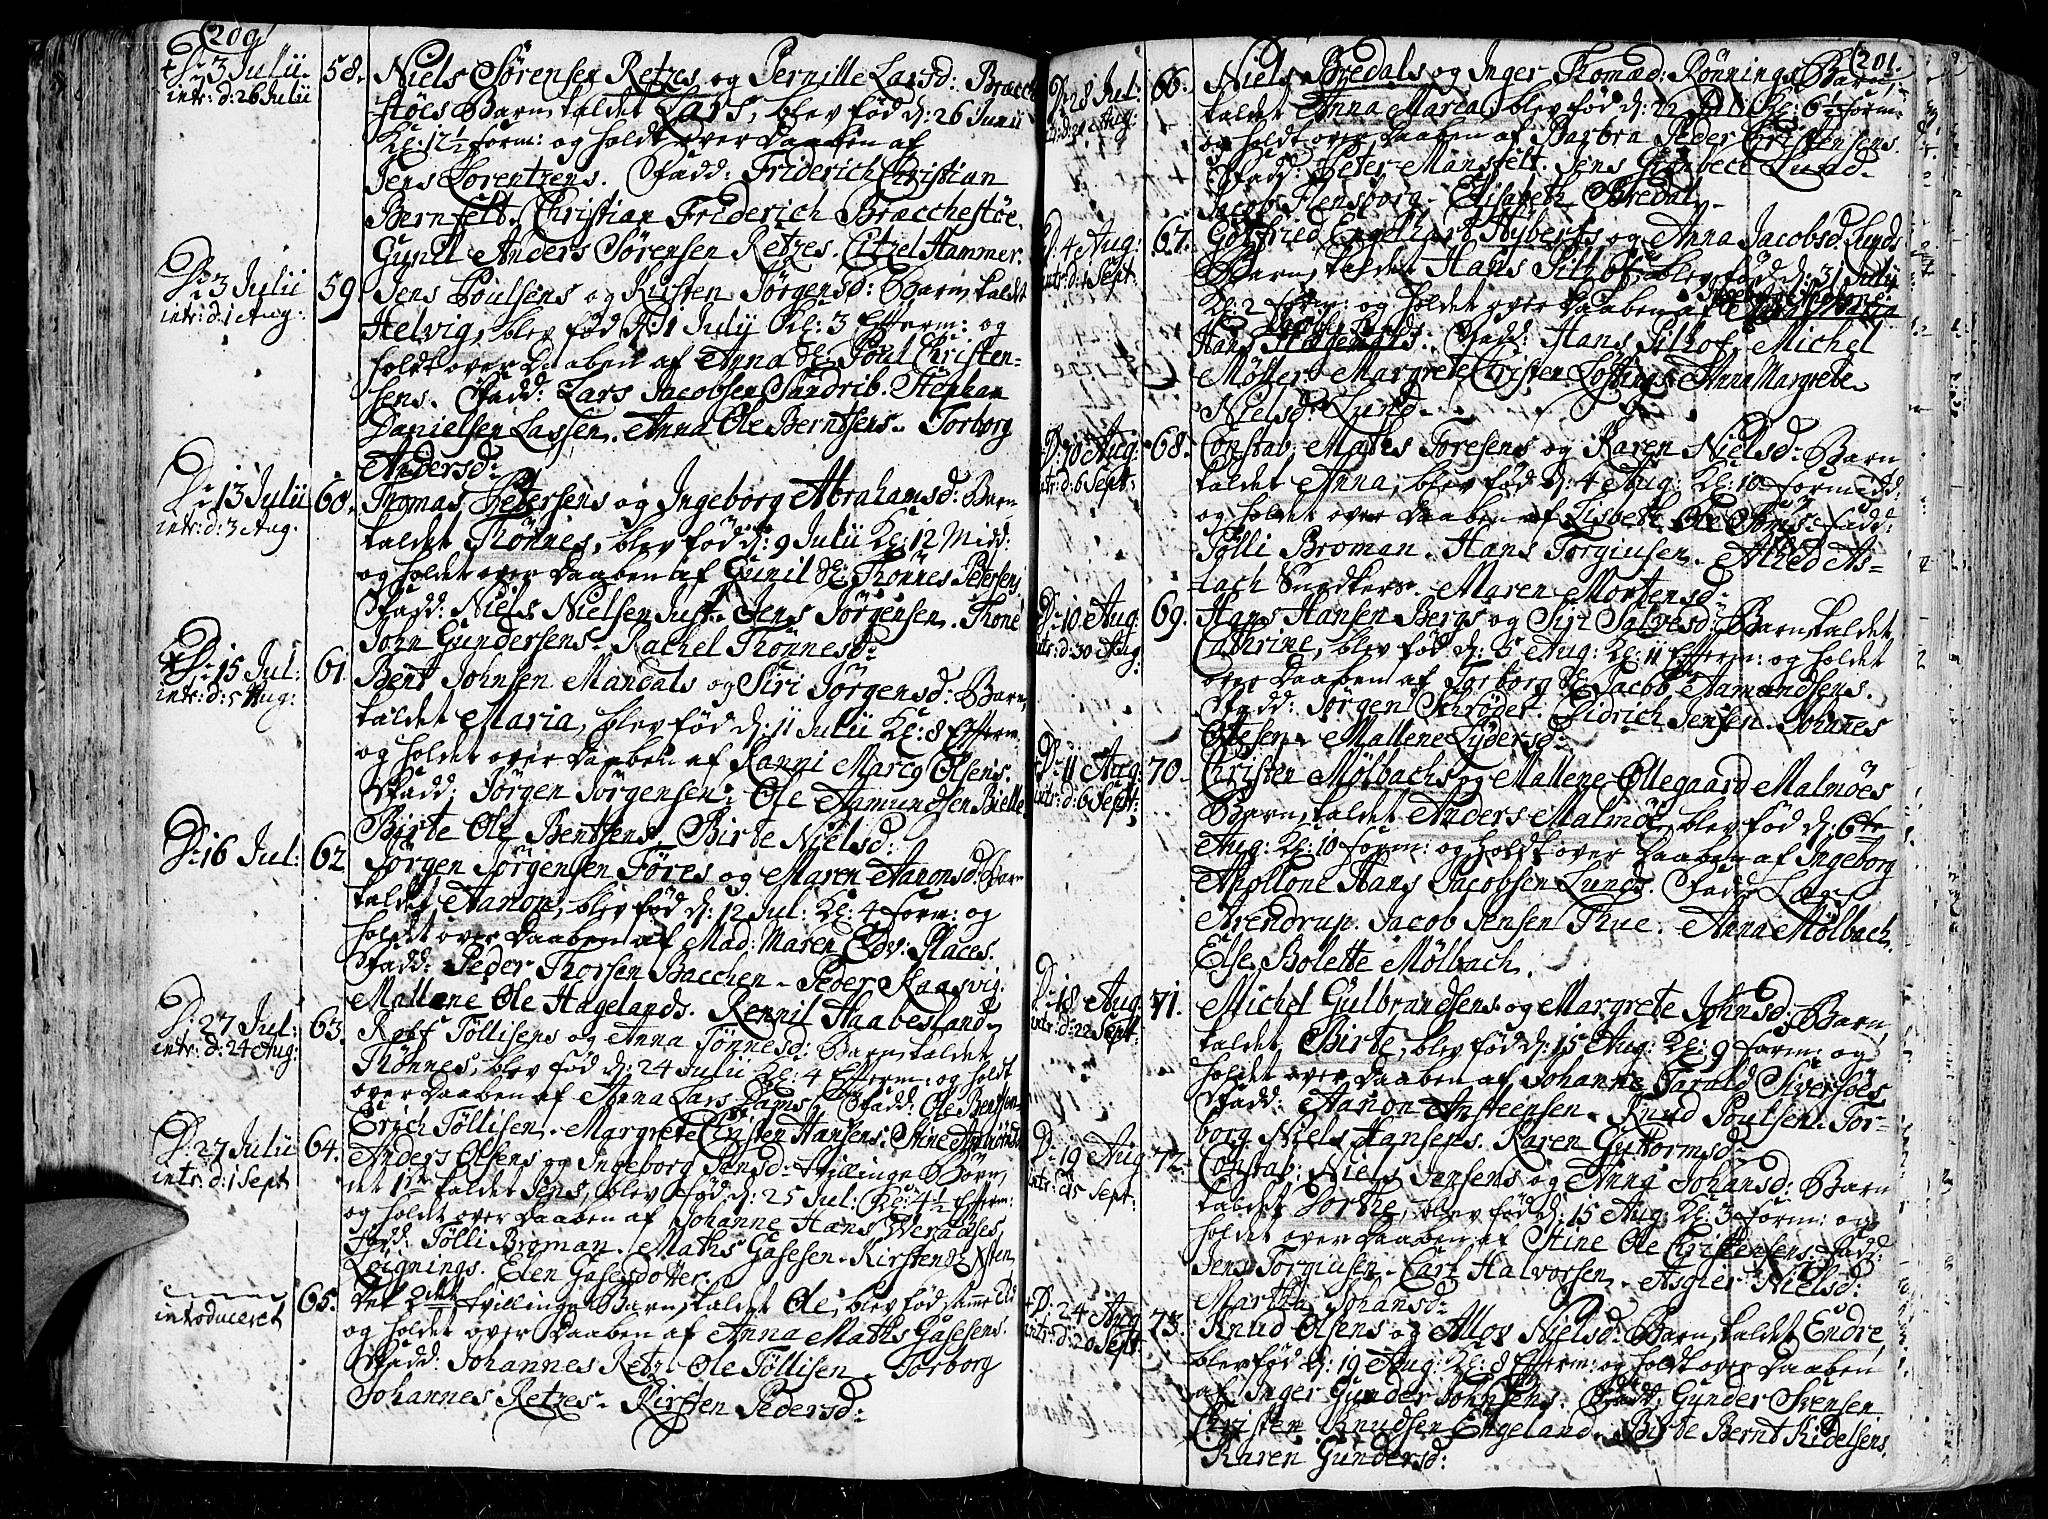 200
D: 3 Julii
intr: d: 26 Julii
58. Niels Sörensen Retzes og Pernille Larsd: Bræcche-
stöes Barn, kaldet Lars, blev föd d: 26 Junii
Kl: 12½ form: og holdt over Daaben af
Jens Lorentzens. Fadd: Friderich Christian
Bernfelt. Christian Friderich Bræcchestöe.
Gunil Anders Sörensen Retzes. Citzel Hammer.
D: 3 Julii
intr: d: 1 Aug:
59 Jens Poulsens og Kirsten Jörgensd: Barn, kaldet
Helvig, blev föd d: 1 Julii Kl: 3 Efterm: og
holdt over Daaben af Anna Poul Christen-
sens. Fadd: Lars Jacobsen Sandrib. Stephan
Danielsen Lassen. Anna Ole Berntsens. Torborg
Andersd:
D: 13 Julii
intr: d: 3 Aug:
60. Thomas Petersens og Ingeborg Abrahamsd: Barn
kaldet Thönnes, blev föd d: 9 Julii Kl: 12 Midd:
og holdet over Daaben af Gunil Thönnes Petersens
Fadd: Niels Nielsen Just. Jens Jörgensen. Thone
John Gundersens. Rachel Thönnesd:
D: 15 Jul:
intr: d: 5 Aug:
61. Bent Johnsen Mandals og Siri Jörgensd: Barn,
kaldet Maria, blev föd d: 11 Julii Kl: 8 Efterm:
og holdet over Daaben af Ranni Marcg Olsens.
Fadd: Jörgen Jörgensen. Ole Aamundsen Bielle
Birte Ole Bentsens. Birte Nielsd:
D: 16 Jul:
62 Jörgen Jörgensen Föres og Maren Aanonsd: Barn
kaldet Aanon, blev föd d: 12 Jul: Kl: 4 form: og
holdt over Daaben af Mad: Maren Edv: Places.
Fadd: Peder Thorsen Bacchen. Peder Kaasvig.
Mallene Ole Hagelands. Rennil Haabesland.
D: 27 Jul:
intr: d: 24 Aug:
63. Rolf Töllisens og Anna Tönnesd: Barn, kaldet
Thönnes, blev föd d: 24 Julii Kl: 4 Efterm: og holdt
over Daaben af Anna Lars Dams. Fadd: Ole Bentsen
Erich Töllisen. Margrete Christen Hansens. Stine
D: 27 Julii
intr: d: 1 Sept
64. Anders Olsens og Ingeborg Jensd: tvillinge Börn,
det 1te kaldet Jens, blev föd d: 25 Jul: Kl: 4½ Efterm:
og holdet over Daaben af Johanne Hans Weraases
Fadd: Tölli Broman. Maths Gasesen. Kirsten
Löignings. Elen Gasesdotter.
introduceret
65. Det 2det tvillinge Barn, kaldet Ole, blev föd
og holdet over Daaben af Anna Maths Gasesens.
Fadd: Johannes Retz. Ole Töllisen. Torborg
Johannes Retzes. Kirsten Pedersd:
201.
D: 28 Jul:
66. Niels Bredals og Inger Thomad: Rönnings Barn,
kaldet Anna Maria, blev föd d: 22 Jul: Kl: 6½ form:
og holdt over Daaben af Barbra Peder Christensens.
Fadd: Peter Mansfelt. Jens Lund.
Jacob Flensborg. Elisabeth Bredal.
D: 4 Aug:
intr: d: 1 Sept
67. Gotfried Engelhart Nyberts og Anna Jacobsd Lunds
Barn, kaldet Hans Pilhof, blev föd d: 31 Julii
Kl: 2 form: og holdet over Daaben af Ingeborg Apolone
Hans Lunds. Fadd: Hans Pilhof. Michel
Möller. Margrete Christen Anna Margrete
Nielsd: Lund.
D: 10 Aug:
intr: d: 6 Sept:
68. Constab: Mathis Toresens og Karen Nielsd: Barn
kaldet Anna, blev föd d: 4 Aug: Kl: 10 formidd:
og holdet over Daaben af Lisbeth Ole Fadd:
Tölli Broman. Hans Torgiusen. Alred As-
lach Snedkers. Maren Mortensd:
D: 10 Aug:
intr: d: 30 Aug:
69. Hans Hansen Bergs og Siri Salvesd: Barn, kaldet
Cathrine, blev föd d: 5 Aug: Kl: 11 Efterm: og holdet
over Daaben af Torborg Jacob Aamundsens.
Fadd: Jörgen Schröder. Didrich Jensen. Johanes
Otesen. Mallene Sydersd:
D: 11 Aug:
intr: d: 6 Sept:
70. Christen Mölbachs og Mallene Ollegaard Malmöes
Barn, kaldet Anders Malmöe, blev föd d: 6te
Aug: Kl: 10 form: og holdt over Daaben af Ingeborg
Apollone Hans Jacobsen Lunds. Fadd: Lars
Arendrup. Jacob Jensen Thue. Anna Mölbach.
Else Bolette Mölbach.
D: 18 Aug
intr: d: 22 Sept:
71. Michel Gulbrandsens og Margrete Johnsd: Barn,
kaldet Birte, blev föd d: 15 Aug: Kl: 9 form: og
holdet over Daaben af Johanne Tarald Siversöes
Fadd: Aanon Ansteensen. Knud Poulsen. Tor-
borg Niels Hansens. Karen Guttormsd:
D: 19 Aug
intr: d: 15 Sept:
72. Constab: Niels Jensens og Anna Johansd: Barn
kaldet Dorthe, blev föd d: 15 Aug: Kl: 3 form: og
holdet over Daaben af Stine Ole Christensens. Fadd:
Jens Torgiusen. Carl Halvorsen. Asgier Nielsd:
Martha Johansd:
D: 24 Aug
intr: d: 20 Sept:
73. Knud Olsens og Allov Nielsd: Barn, kaldet Endre,
blev föd d: 19 Aug: Kl: 8 Efterm: og holdt over Daaben
af Inger Gunder Johnsens. Fadd: Gunder Svensen
Christen Knudsen Engeland. Birte Bernt Kidelsens.
Karen Gundersd: